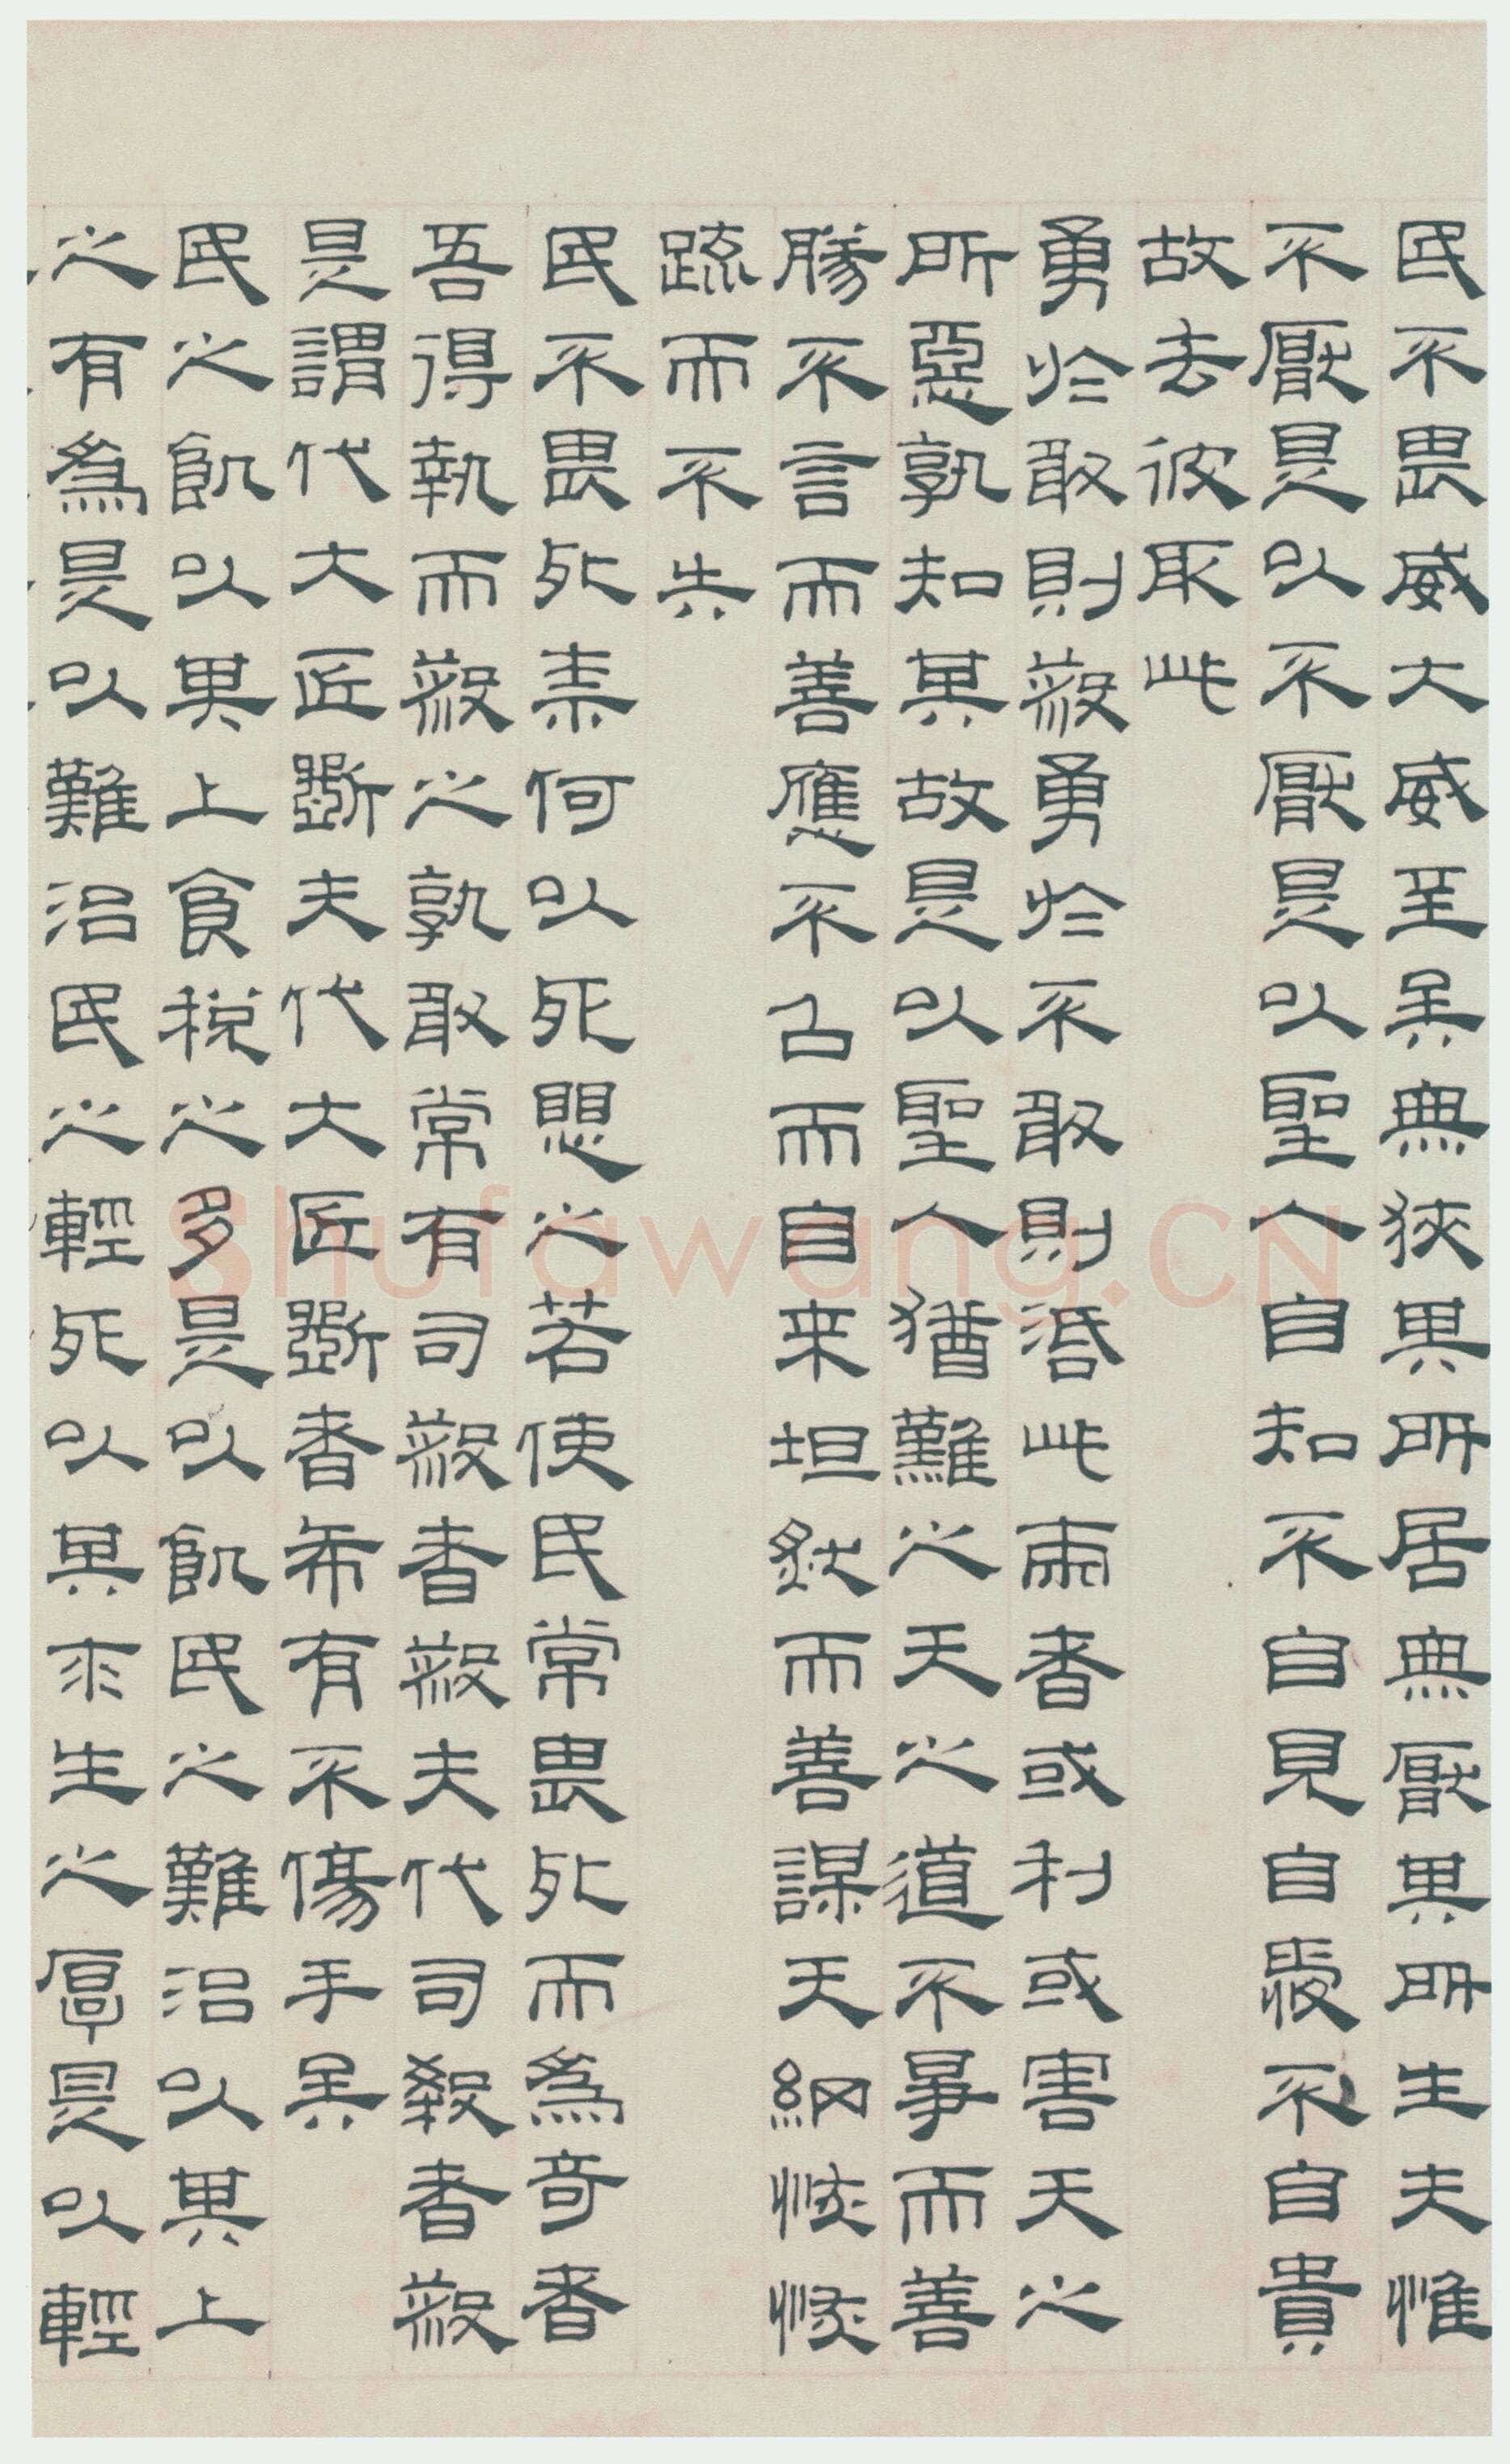 民不畏威大威至矣無狹其所居無厭其所生夫惟
不厭是以不厭是以聖人自知不自見自愛不自貴
故去彼取此
勇於敢則殺勇於不敢則活此兩者或利或害天之
所惡孰知其故是以聖人猶難之天之道不爭而善
勝不言而善應不召而自来坦然而善謀天網恢恢
疏而不失
民不畏死柰何以死懼之若使民常畏死而為奇者
吾得執而殺之孰敢常有司殺者殺夫代司殺者殺
是謂代大匠斲夫代大匠斲者希有不傷手矣
民之飢以其上食稅之多是以飢民之難治以其上
之有為是以難治民之輕死以其求生之厚是以輕
Shufawang.CN